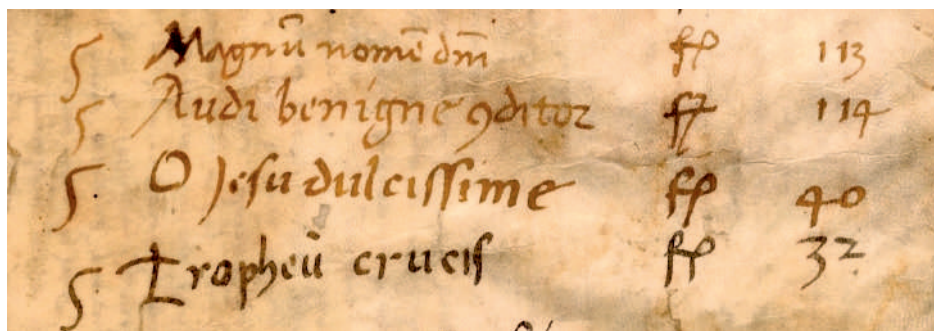 § Magnū nomē dm̄ fo 113
§ Audi benigne ꝯditor fo 114
§. O Jesu dulcissime fo 40
§ Tropheū crucis fo 32